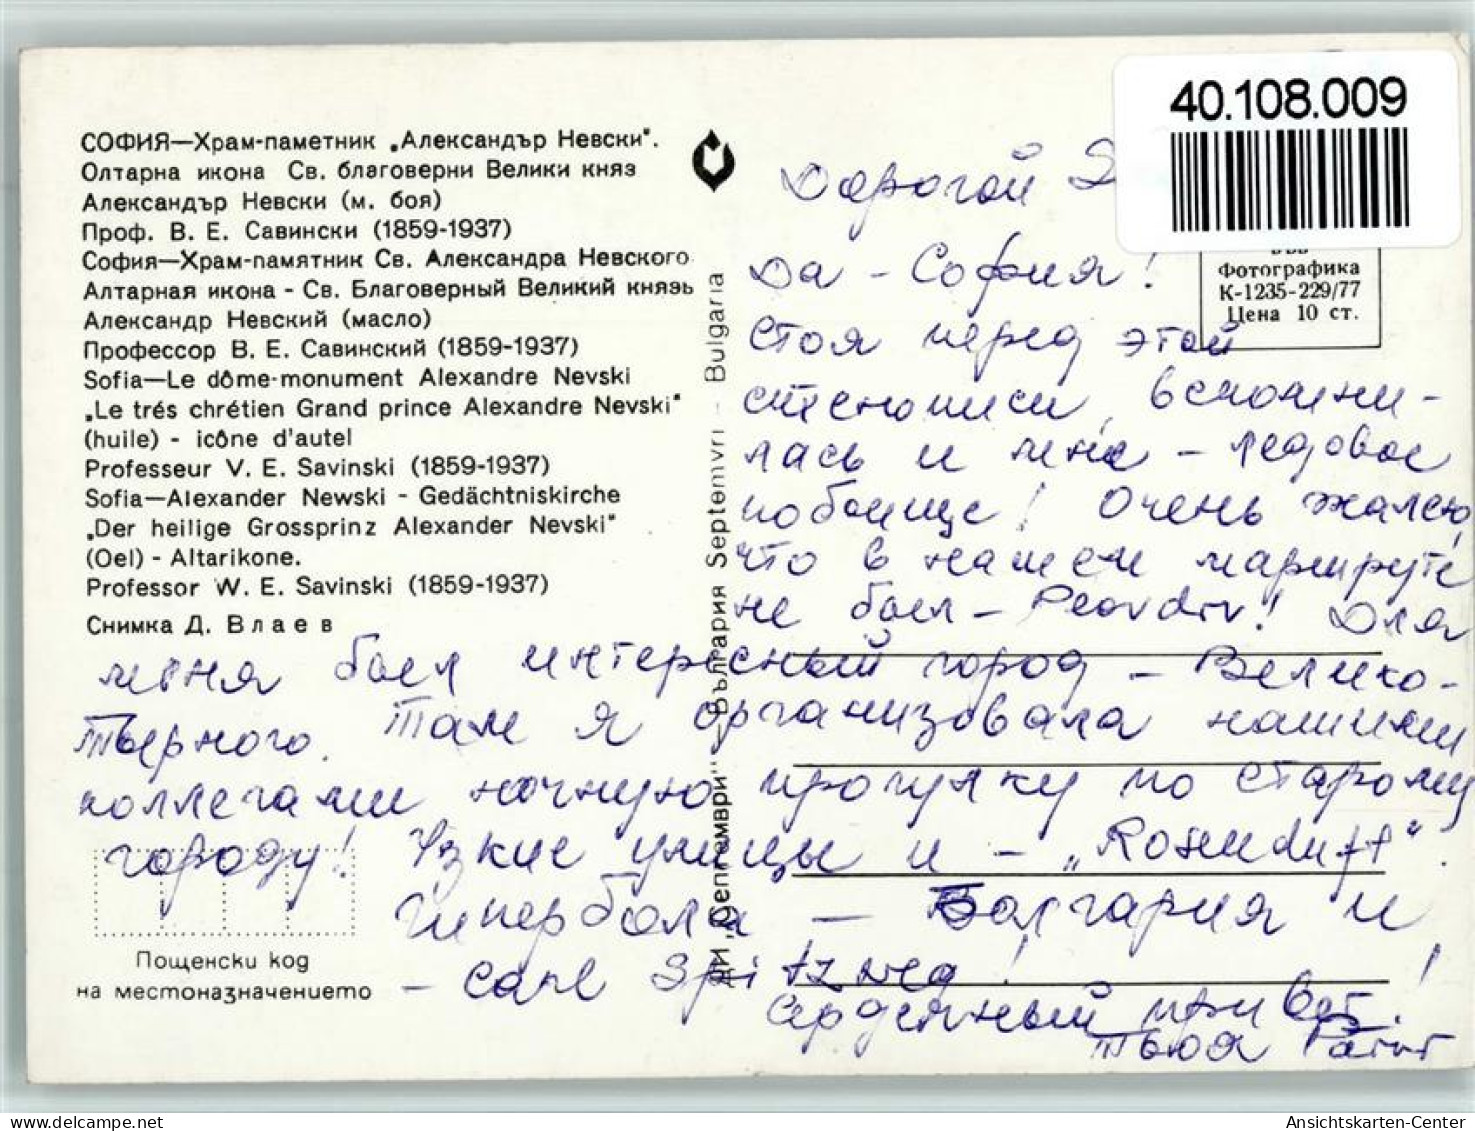 40.108.009
СОФИЯ—Храм-паметник „Александър Невски".
Олтарна икона Св. благоверни Велики княз
Александър Невски (м. боя)
Проф. В. Е. Савински (1859-1937)
София—Храм-памятник Св. Александра Невского
Алтарная икона - Св. Благоверный Великий князь
Александр Невский (масло)
Профессор В. Е. Савинский (1859-1937)
Sofia—Le dôme-monument Alexandre Nevski
„Le trés chrétien Grand prince Alexandre Nevski"
(huile) - icône d'autel
Professeur V. E. Savinski (1859-1937)
Sofia—Alexander Newski - Gedächtniskirche
„Der heilige Grossprinz Alexander Nevski"
(Oel) - Altarikone.
Professor W. E. Savinski (1859-1937)
Снимка Д. Влаев
ДИ „Септември" България Septemvri - Bulgaria
Фотографика
К-1235-229/77
Цена 10 ст.
Дорогой
Да - София!
Стоя перед этой
стенописи, вспомни-
лась и мне - ледовое
побоище! Очень жалею,
что в нашем маршруте
не был - Plovdiv! Для
меня был интересный город - Велико-
Тырного. Там я организовала нашими
коллегами ночную прогулку по старому
городу! Узкие улицы и - „Rosenduft".
Гипербола - Болгария и
- Carl Spitzweg!
Сердечный привет!
Твоя
Пощенски код
на местоназначението
Ansichtskarten-Center